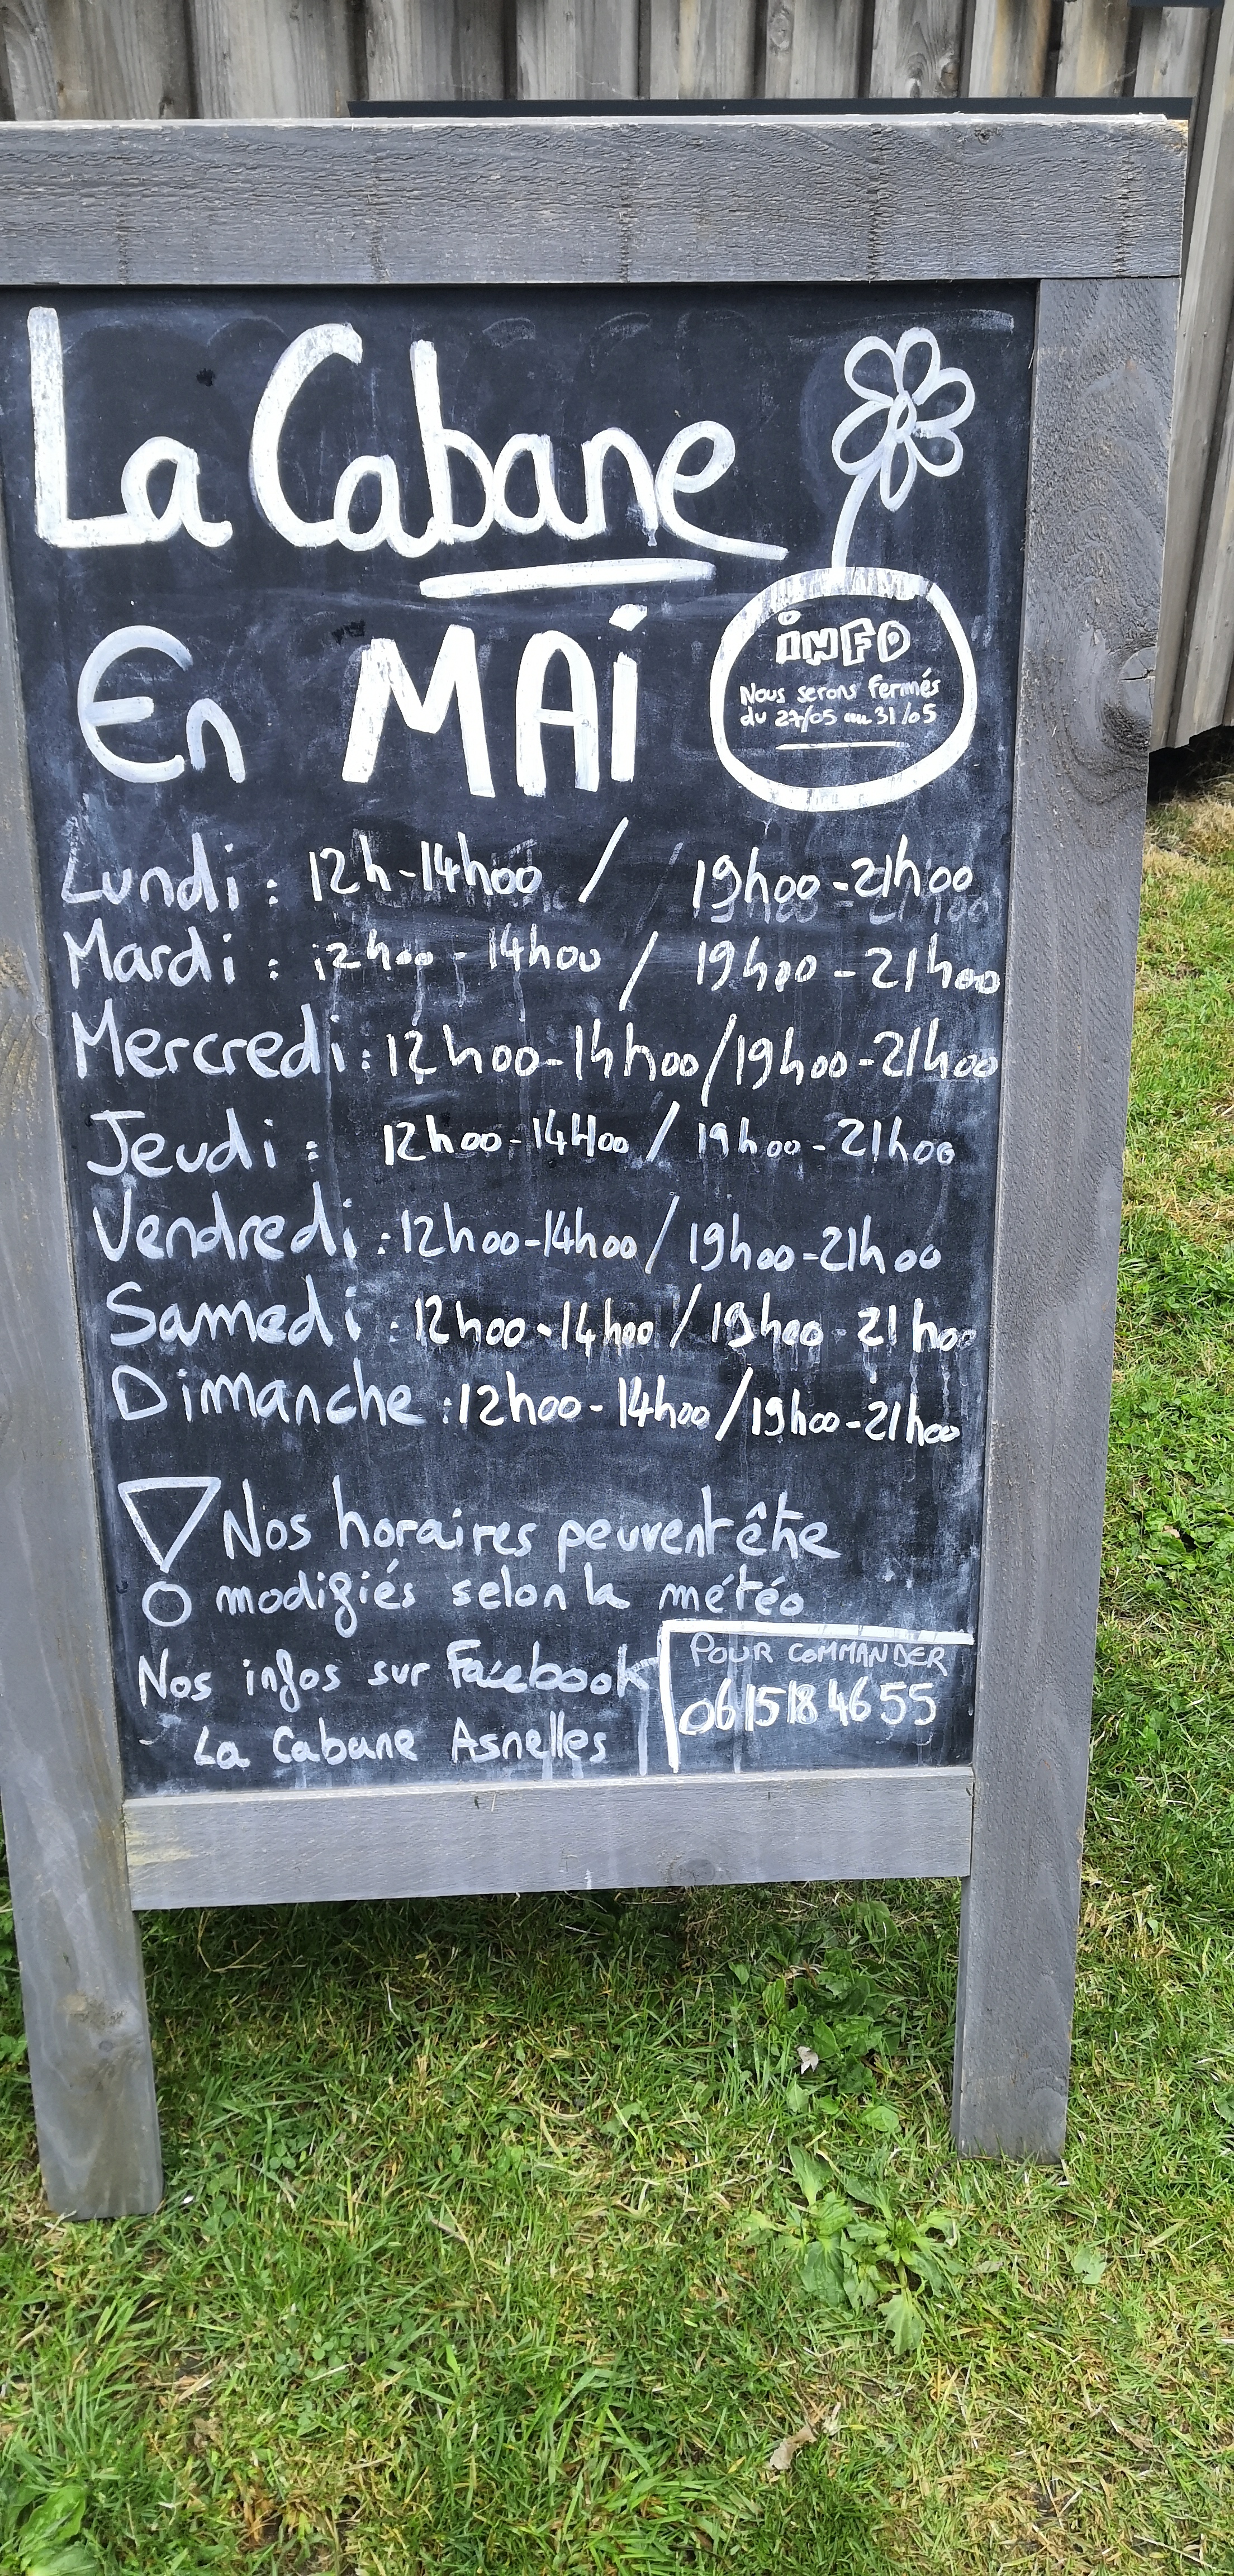 La Cabane
En MAi
iNFO
Nous serons fermés
du 27/05 au 31/05
Lundi : 12h-14h00 / 19h00-21h00
Mardi : 12h00 - 14h00 / 19h00 - 21h00
Mercredi : 12h00-14h00/19h00-21h00
Jeudi : 12h00-14H00 / 19h00-21h00
Vendredi : 12h00-14h00/19h00-21h00
Samedi : 12h00-14h00/19h00 - 21h00
Dimanche : 12h00-14h00/19h00-21h00
Nos horaires peuvent être
modifiés selon la météo
Nos infos sur Facebook
La Cabane Asnelles
POUR COMMANDER
0615184655